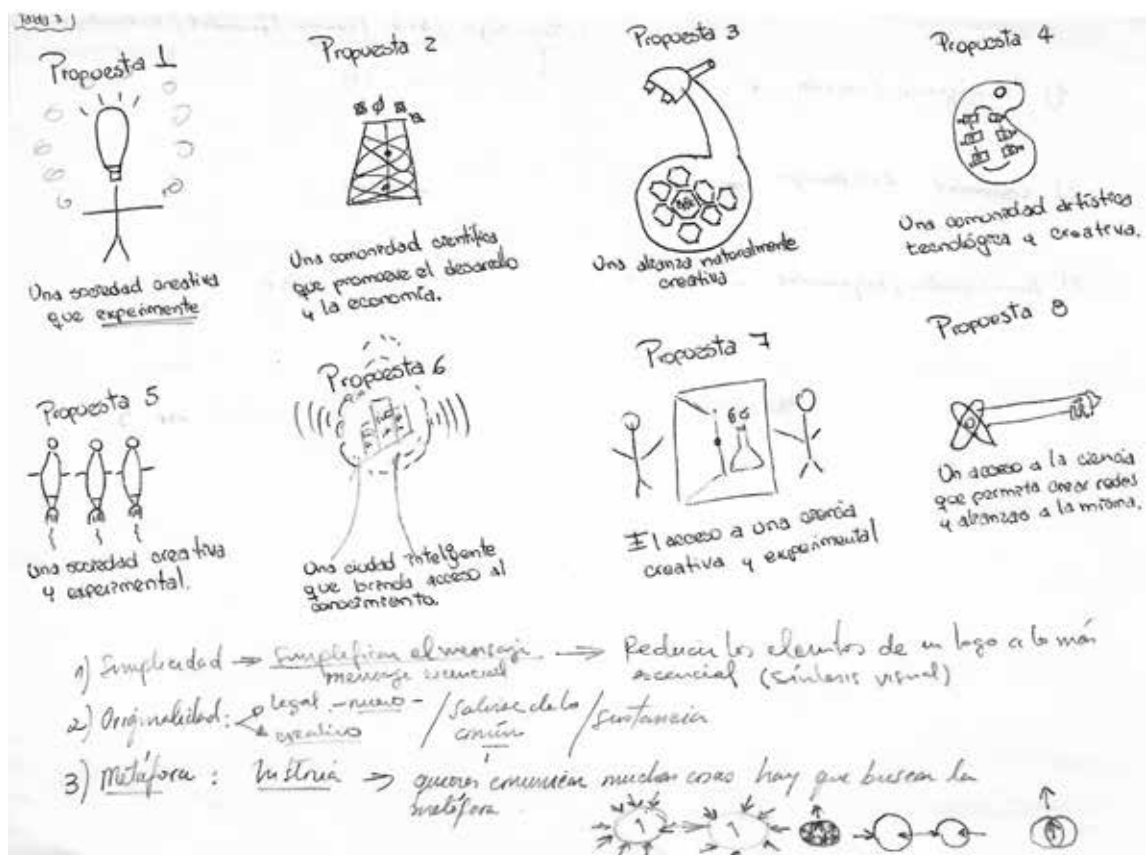 Propuesta 1
Una sociedad creativa
que experimente
Propuesta 2
Una comunidad científica
que promueve el desarollo
y la economía.
Propuesta 3
Una alianza naturalmente
creativa
Propuesta 4
Una comunidad artística
tecnológica y creativa.
Propuesta 5
Una sociedad creativa
y experimental.
Propuesta 6
Una ciudad inteligente
que brinda acceso al
conocimiento.
Propuesta 7
El acceso a una ciencia
creativa y experimental
Propuesta 8
Un acceso a la ciencia
que permita crear redes
y alianzas a la misma.
1) Simplicidad → Simplificar el mensaje → Reducir los elementos de un logo a lo más
mensaje esencial esencial (síntesis visual)
2) Originalidad: legal - nuevo - / salirse de lo / sustancia
creativo común
3) Metáfora: historia → quieres comunicar muchas cosas hay que buscar la
metáfora